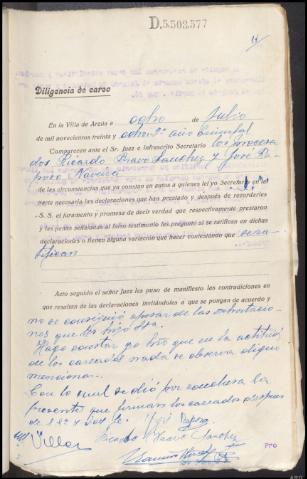 D.5.503.577
Diligencia de careo
En la Villa de Arzúa a ocho de Julio
de mil novecientos treinta y ocho, año triunfal
Comparecen ante el Sr. Juez e infrascrito Secretario los procesa
dos Ricardo Bravo Sanchez y José
de las circunstancias que ya constan en autos a quienes leí yo Secretario en
parte necesaria las declaraciones que han prestado y después de recordarles
S. S. el juramento y promesa de decir verdad que respectivamente prestaron
y las penas señaladas al falso testimonio les preguntó si se ratifican en dichas
declaraciones o tienen alguna variación que hacer contestando que se ra-
tifican
Acto seguido el señor Juez les puso de manifiesto las contradicciones en
que resultan de las declaraciones invitándoles a que se pongan de acuerdo y
no se consiguió apesar de las
nes que les hizo SSa.
Hago constar yo Srio que en la actitud
de los careados nada se observa digno
mencionar.
Con lo cual se dió por conclusa la
presente que firman los careados despues
de S.S. doy fe.
Villar
Ricardo Bravo Sanchez